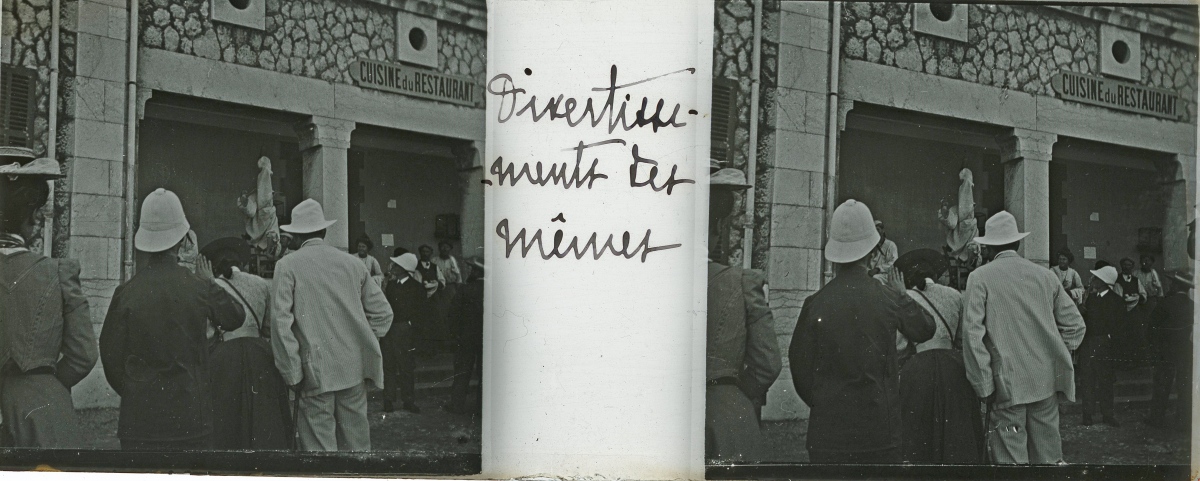 CUISINE du RESTAURANT
Divertisse-
-ments des
mêmes
CUISINE du RESTAURANT